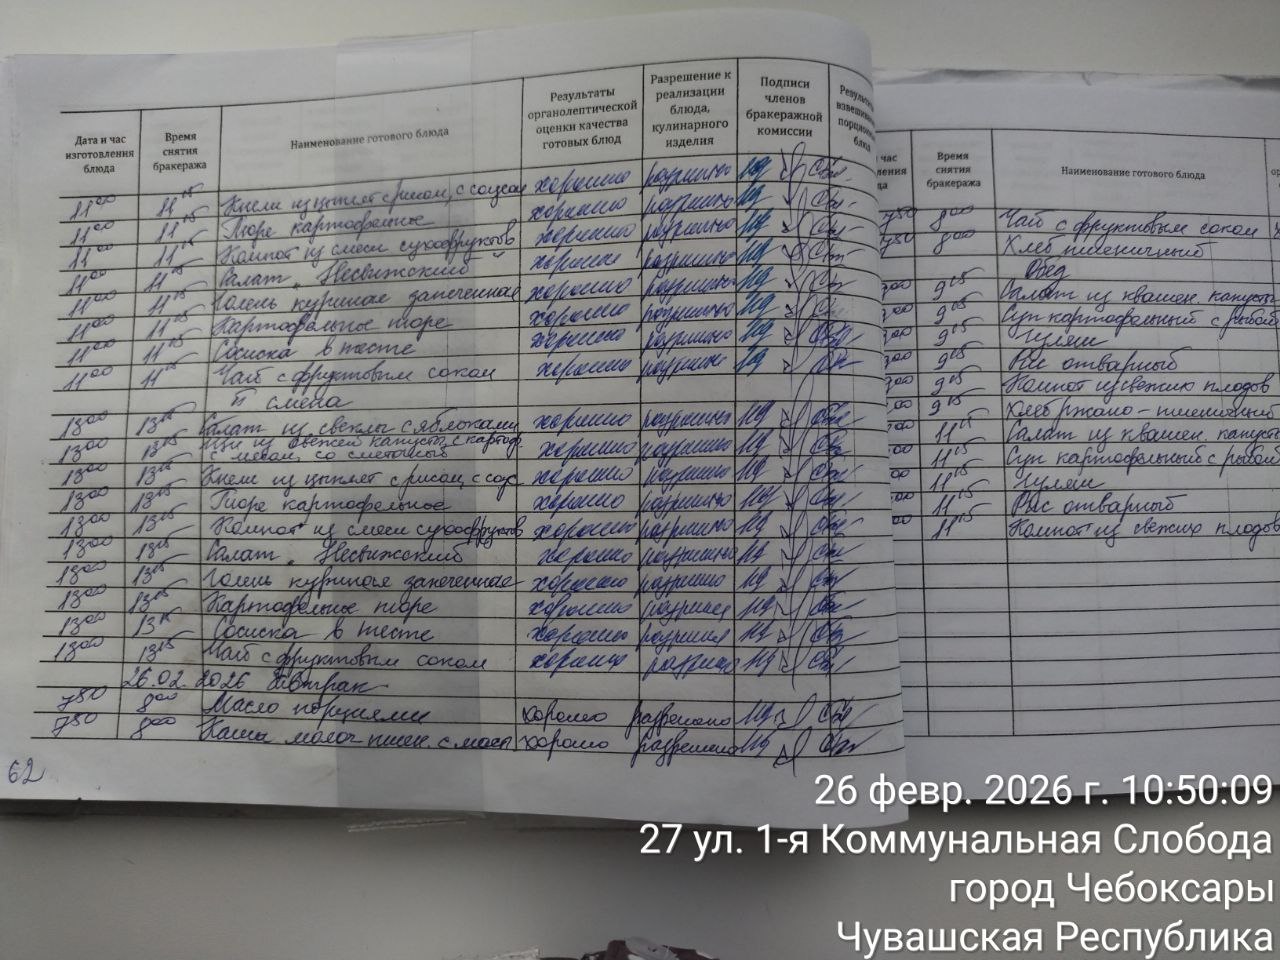 Дата и час изготовления блюда
Время снятия бракеража
Наименование готового блюда
Результаты органолептической оценки качества готовых блюд
Разрешение к реализации блюда, кулинарного изделия
Подписи членов бракеражной комиссии
11 00 11 15 Кнели из цыплят с рисом, с соусом хорошо разрешено
11 00 11 15 Пюре картофельное хорошо разрешено
11 00 11 15 Компот из смеси сухофруктов хорошо разрешено
11 00 11 15 Салат "Несвижский" хорошо разрешено
11 00 11 15 Голень куриная запеченная хорошо разрешено
11 00 11 15 Картофельное пюре хорошо разрешено
11 00 11 15 Сосиска в тесте хорошо разрешено
11 00 11 15 Чай с фруктовым соком хорошо разрешено
II смена
13 00 13 15 Салат из свеклы с яблоками хорошо разрешено
13 00 13 15 Щи из свежей капусты с картоф. хорошо разрешено
лем, со сметаной
13 00 13 15 Кнели из цыплят с рисом, с соус хорошо разрешено
13 00 13 15 Пюре картофельное хорошо разрешено
13 00 13 15 Компот из смеси сухофруктов хорошо разрешено
13 00 13 15 Салат "Несвижский" хорошо разрешено
13 00 13 15 Голень куриная запеченная хорошо разрешено
13 00 13 15 Картофельное пюре хорошо разрешено
13 00 13 15 Сосиска в тесте хорошо разрешено
13 00 13 15 Чай с фруктовым соком хорошо разрешено
26.02.2026 Завтрак
7 50 8 00 Масло порциями хорошо разрешено
7 50 8 00 Каша молоч пшен. с масл хорошо разрешено
62
Время снятия бракеража
Наименование готового блюда
7 50 8 00 Чай с фруктовым соком
7 50 8 00 Хлеб пшеничный
Обед
9 15 Салат из квашен. капусты
9 15 Суп картофельный с рыбой
9 15 Гуляш
9 15 Рис отварный
9 15 Компот из свежих плодов
9 15 Хлеб ржано-пшеничный
11 15 Салат из квашен. капусты
11 15 Суп картофельный с рыбой
11 15 Гуляш
11 15 Рис отварный
11 15 Компот из свежих плодов
26 февр. 2026 г. 10:50:09
27 ул. 1-я Коммунальная Слобода
город Чебоксары
Чувашская Республика